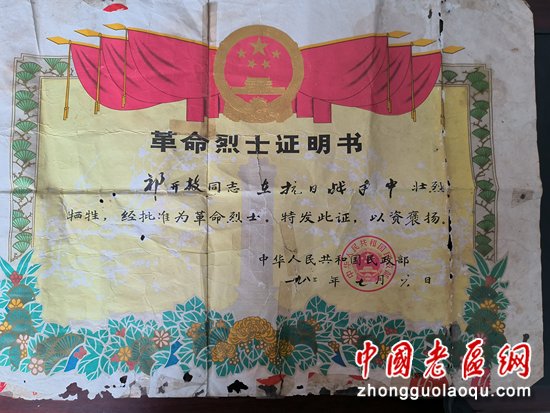 革命烈士证明书
祁开敖同志在抗日战争中壮烈
牺牲,经批准为革命烈士。特发此证,以资褒扬。
中华人民共和国民政部
一九八二年七月六日
中國老區網
zhongguolaoqu.com